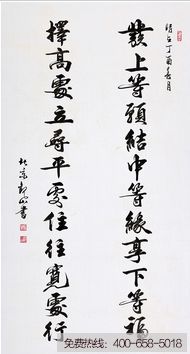 丁酉春月
發上等願結中等緣享下等福
擇高處立尋平處住往寬處行
北京
書
免费热线：400-658-5018